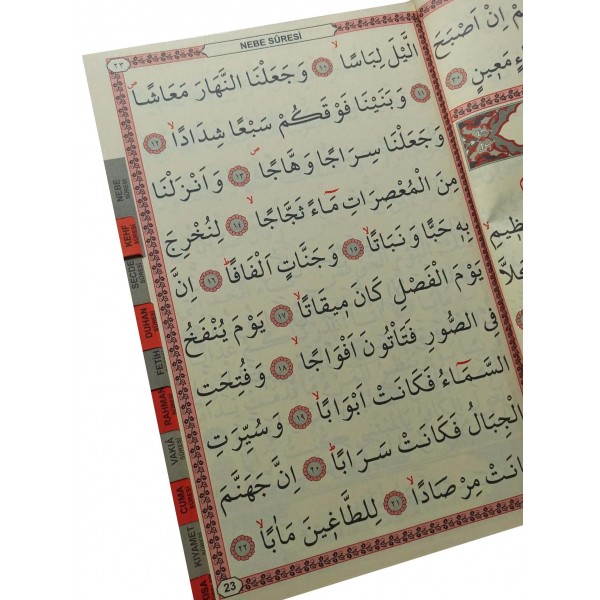 ٢٣ NEBE SÛRESİ
الَّيْلَ لِبَاسًاۙ ﴿١٠﴾ وَجَعَلْنَا النَّهَارَ مَعَاشًاۖ
﴿١١﴾ وَبَنَيْنَا فَوْقَكُمْ سَبْعًا شِدَادًاۙ ﴿١٢﴾
وَجَعَلْنَا سِرَاجًا وَهَّاجًاۖ ﴿١٣﴾ وَاَنْزَلْنَا
مِنَ الْمُعْصِرَاتِ مَٓاءً ثَجَّاجًاۙ ﴿١٤﴾ لِنُخْرِجَ
بِهٖ حَبًّا وَنَبَاتًاۙ ﴿١٥﴾ وَجَنَّاتٍ اَلْفَافًاۜ ﴿١٦﴾ اِنَّ
يَوْمَ الْفَصْلِ كَانَ مٖيقَاتًاۙ ﴿١٧﴾ يَوْمَ يُنْفَخُ
فِى الصُّورِ فَتَأْتُونَ اَفْوَاجًاۙ ﴿١٨﴾ وَفُتِحَتِ
السَّمَٓاءُ فَكَانَتْ اَبْوَابًاۙ ﴿١٩﴾ وَسُيِّرَتِ
الْجِبَالُ فَكَانَتْ سَرَابًاۜ ﴿٢٠﴾ اِنَّ جَهَنَّمَ
كَانَتْ مِرْصَادًاۙ ﴿٢١﴾ لِلطَّاغٖينَ مَاٰبًاۙ ﴿٢٢﴾
23
NEBE SÛRESİ
KEHF SÛRESİ
SECDE SÛRESİ
DUHAN SÛRESİ
FETİH SÛRESİ
RAHMAN SÛRESİ
VAKIA SÛRESİ
CUMA SÛRESİ
KIYAMET SÛRESİ
اِنْ اَصْبَحَ
مَعٖينٍ ﴿٣٠﴾